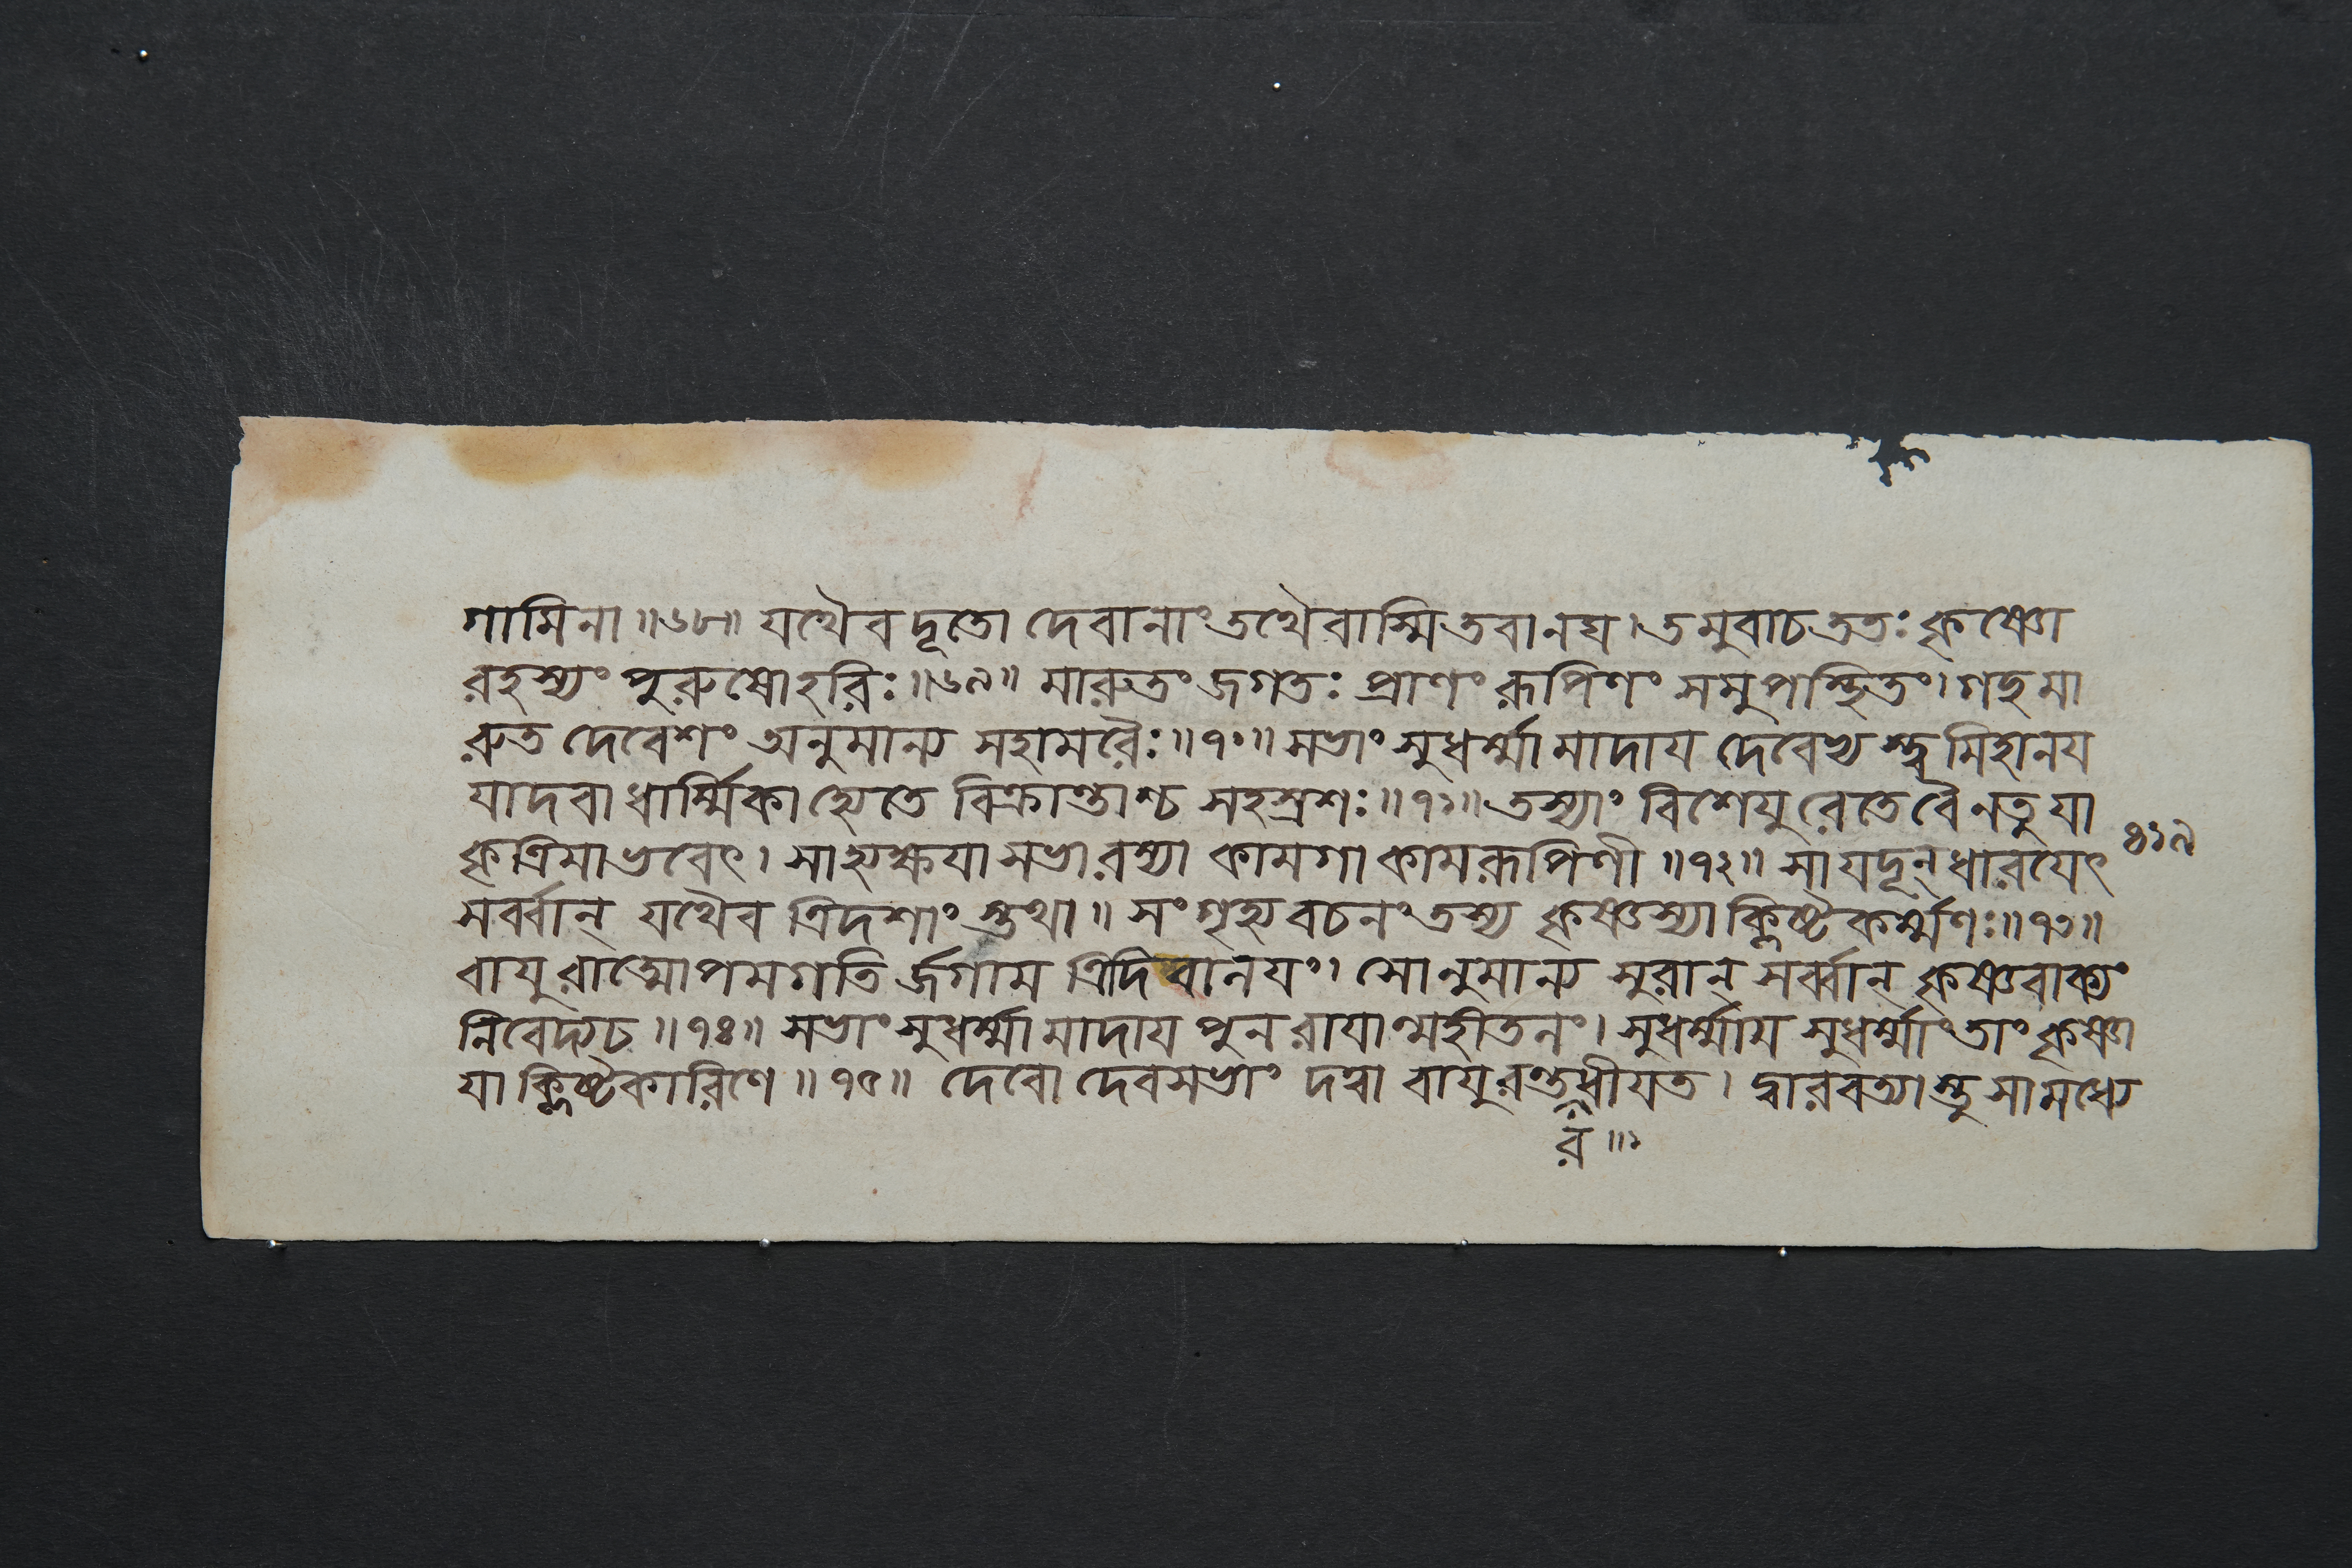 গামিনা ॥৬৮॥ যথৈব দূতো দেবানাং তথৈবাস্মি তবানঘ । তমুবাচ ততঃ কৃষ্ণো
রহস্যং পুরুষো হরিঃ ॥৬৯॥ মারুতং জগতঃ প্রাণং রূপিণং সমুপস্থিতং । গচ্ছ মা
রুত দেবেশং অনুমান্য সহামরৈঃ ॥৭০॥ সভাং সুধর্ম্মামাদায দেবেভ্যস্ত্বমিহানয
যাদবা ধার্ম্মিকা হ্যেতে বিক্রান্তাশ্চ সহস্রশঃ ॥৭১॥ তস্যাং বিশেযুরেতে বৈ নতু যা
কৃত্রিমা ভবেৎ । সা হ্যক্ষযা সভা রম্যা কামগা কামরূপিণী ॥৭২॥ সা যদূন্ ধারযেৎ
৪১৯
সর্ব্বান্ যথৈব ত্রিদশাংস্তথা ॥ সংগৃহ্য বচনং তস্য কৃষ্ণস্যাক্লিষ্টকর্ম্মণঃ ॥৭৩॥
বাযুরাত্মোপমগতির্জগাম ত্রিদিবালযং । সোনুমান্য সুরান্ সর্ব্বান্ কৃষ্ণবাক্যং
নিবেদ্য চ ॥৭৪॥ সভাং সুধর্ম্মামাদায পুনরাযান্মহীতলং । সুধর্ম্মায সুধর্ম্মাং তাং কৃষ্ণা
যাক্লিষ্টকারিণে ॥৭৫॥ দেবো দেবসভাং দত্বা বাযুরন্তধীযত । দ্বারবত্যাস্তু সা মধ্যে
র ॥১